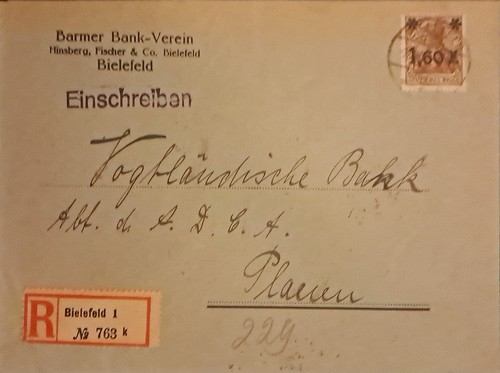 Barmer Bank-Verein
Hinsberg, Fischer & Co. Bielefeld
Bielefeld
* *
1,60 M
Einschreiben
Vogtländische Bank
Abt. d. A. D. C. A.
Plauen
R
Bielefeld 1
№ 763 k
229